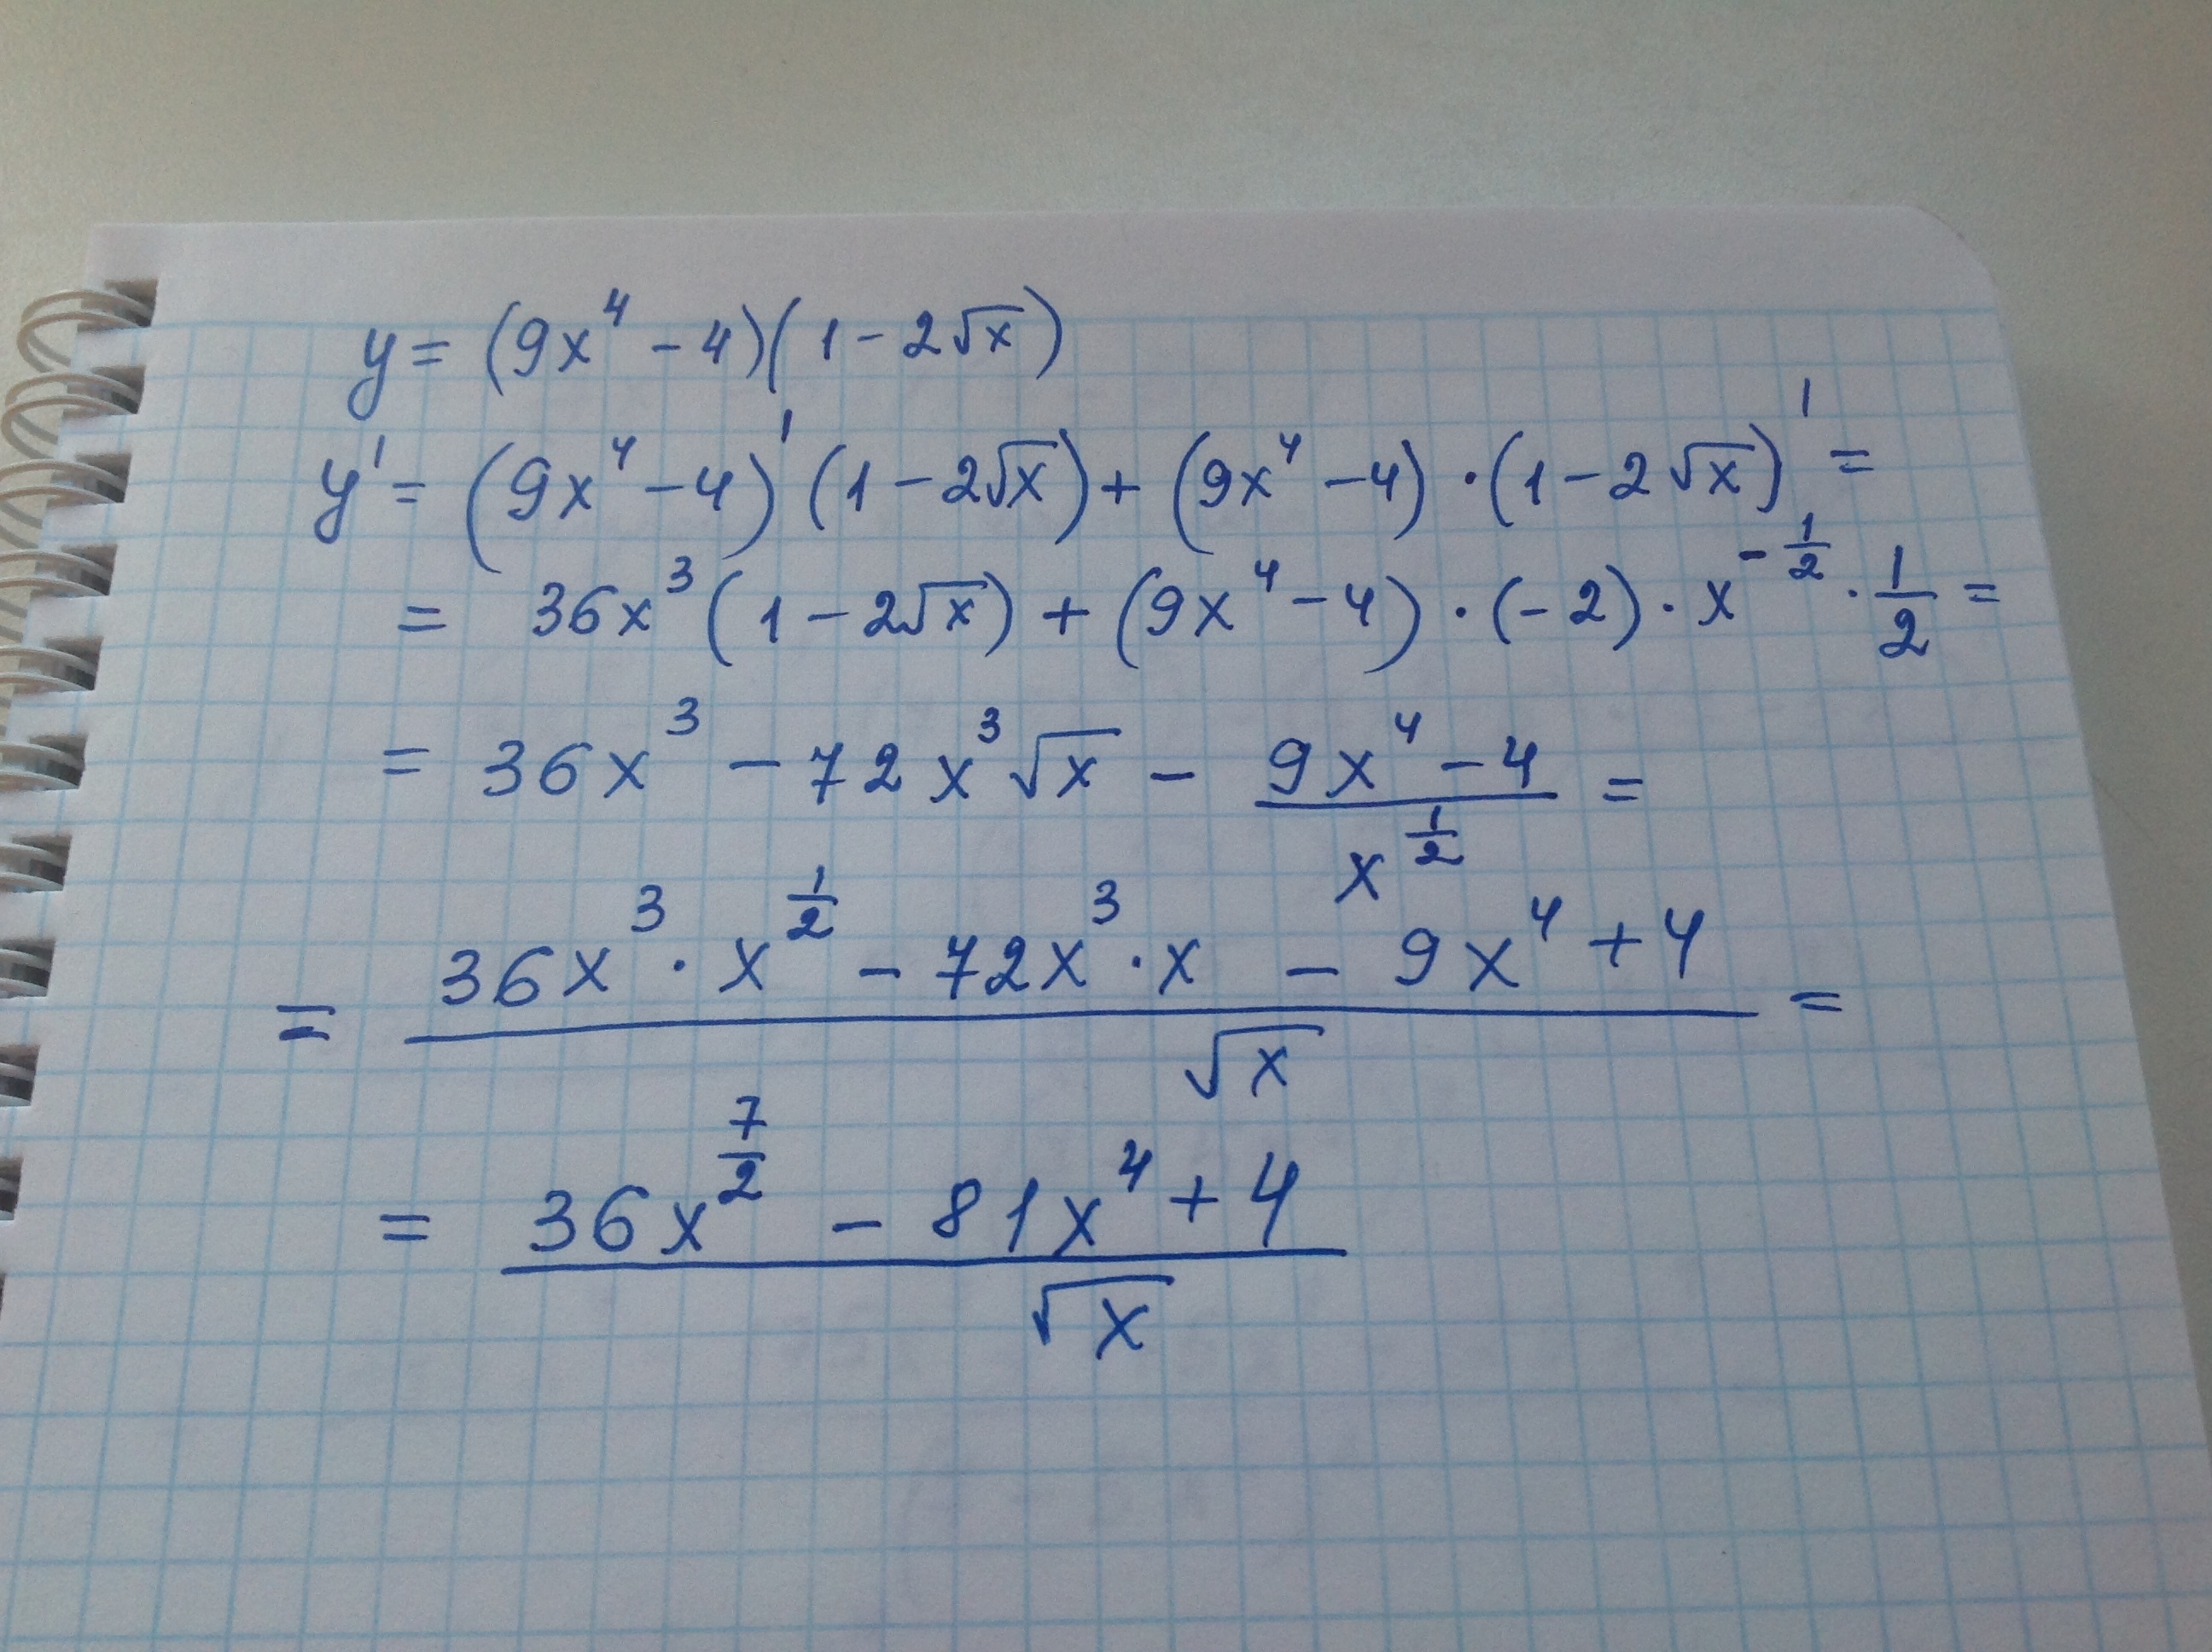 y = (9x⁴ - 4)(1 - 2√x)
y' = (9x⁴ - 4)' (1 - 2√x) + (9x⁴ - 4) · (1 - 2√x)' =
= 36x³ (1 - 2√x) + (9x⁴ - 4) · (-2) · x^(-1/2) · 1/2 =
= 36x³ - 72x³√x - (9x⁴ - 4)/x^(1/2) =
= (36x³ · x^(1/2) - 72x³ · x - 9x⁴ + 4)/√x =
= (36x^(7/2) - 81x⁴ + 4)/√x